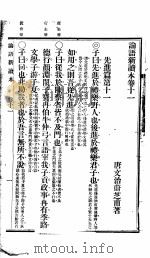 論語新讀本卷十一
唐文治蔚芝甫著
先進篇第十一
子曰先進於禮樂野人也後進於禮樂君子也
如用之則吾從先進
子曰從我於陳蔡者皆不及門也
德行顏淵閔子騫冉伯牛仲弓言語宰我子貢政事冉有季路
文學子游子夏
子曰回也非助我者也於吾言無所不說
論語新讀本卷十一